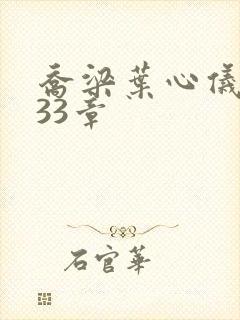 乔梁葉心儀
33章
石官華